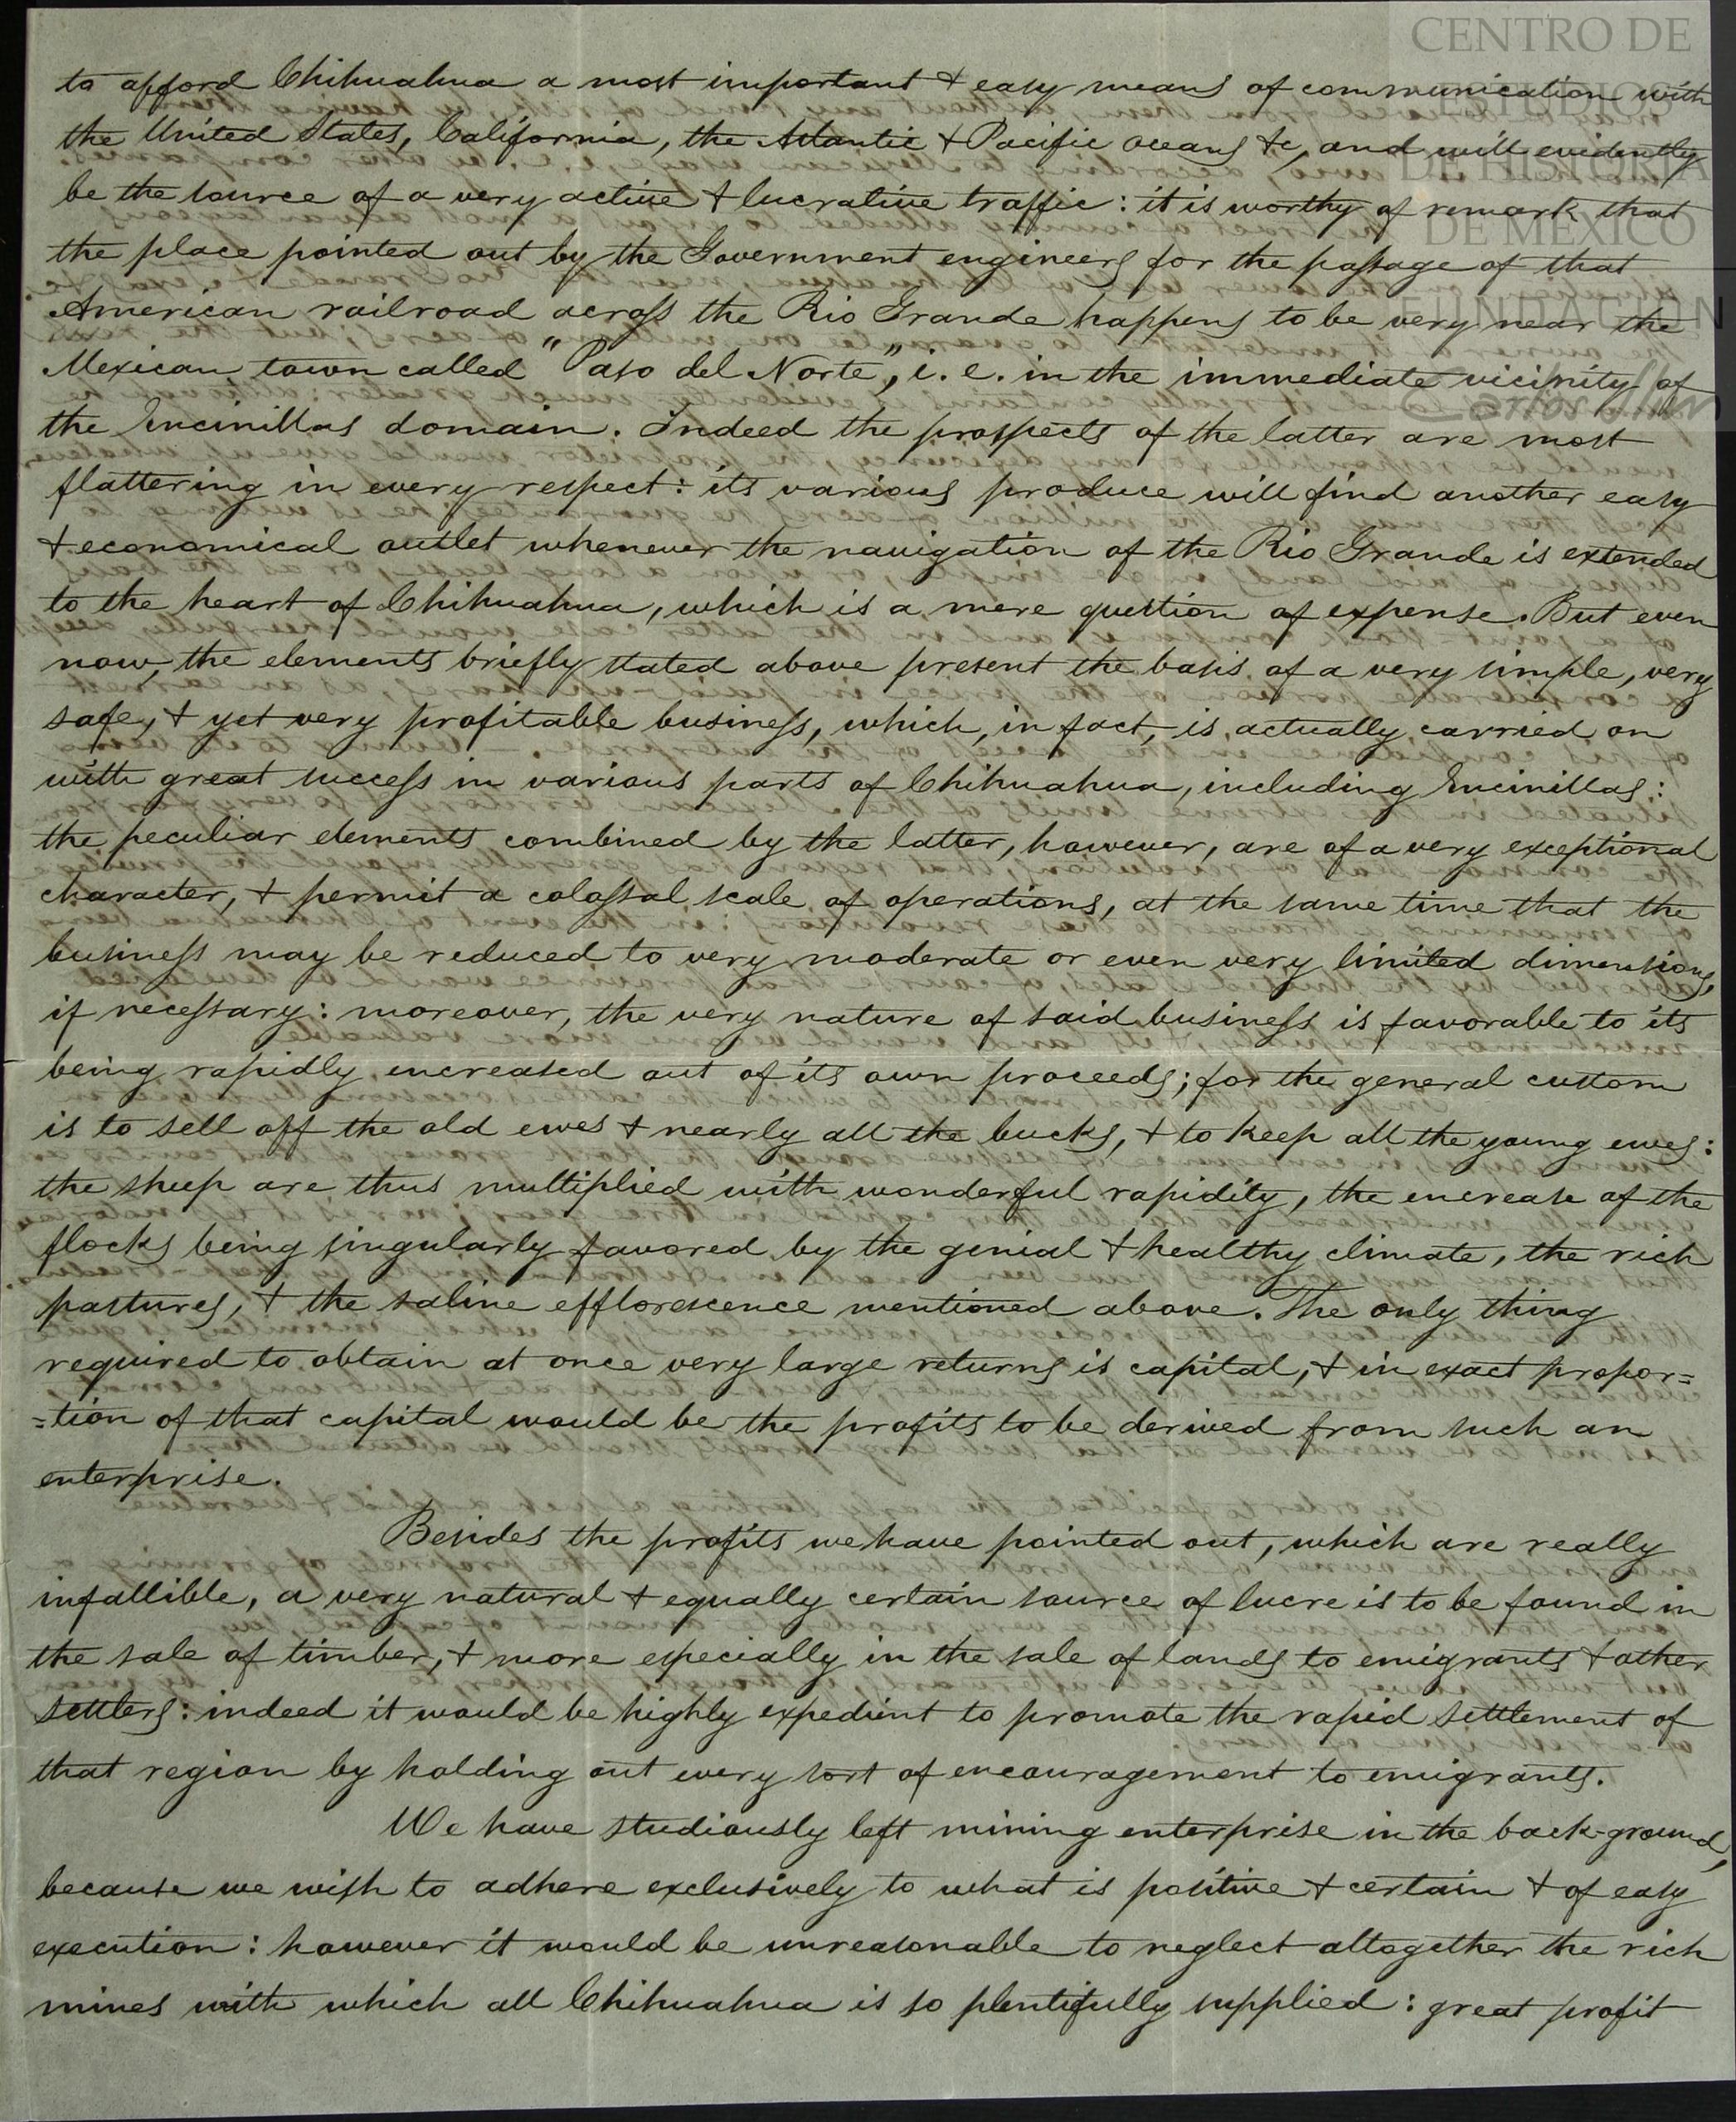 CENTRO DE
ESTUDIOS
DE HISTORIA
DE MEXICO
FUNDACION
Carlos Slim
to afford Chihuahua a most important & easy means of communication with
the United States, California, the Atlantic & Pacific oceans &c, and will evidently
be the source of a very active & lucrative traffic: it is worthy of remark that
the place pointed out by the Government engineers for the passage of that
American railroad across the Rio Grande happens to be very near the
Mexican town called "Paso del Norte", i. e. in the immediate vicinity of
the Encinillas domain. Indeed the prospects of the latter are most
flattering in every respect: its various produce will find another easy
& economical outlet whenever the navigation of the Rio Grande is extended
to the heart of Chihuahua, which is a mere question of expense. But even
now, the elements briefly stated above present the basis of a very simple, very
safe, & yet very profitable business, which, in fact, is actually carried on
with great success in various parts of Chihuahua, including Encinillas:
the peculiar elements combined by the latter, however, are of a very exceptional
character, & permit a colossal scale of operations, at the same time that the
business may be reduced to very moderate or even very limited dimensions,
if necessary: moreover, the very nature of said business is favorable to its
being rapidly increased out of its own proceeds; for the general custom
is to sell off the old ewes & nearly all the bucks, & to keep all the young ewes:
the sheep are thus multiplied with wonderful rapidity, the encrease of the
flocks being singularly favored by the genial & healthy climate, the rich
pastures, & the saline efflorescence mentioned above. The only thing
required to obtain at once very large returns is capital, & in exact propor=
=tion of that capital would be the profits to be derived from such an
enterprise.
Besides the profits we have pointed out, which are really
infallible, a very natural & equally certain source of lucre is to be found in
the sale of timber, & more especially in the sale of lands to emigrants & other
settlers: indeed it would be highly expedient to promote the rapid settlement of
that region by holding out every sort of encouragement to emigrants.
We have studiously left mining enterprise in the back-ground,
because we wish to adhere exclusively to what is positive & certain & of easy
execution: however it would be unreasonable to neglect altogether the rich
mines with which all Chihuahua is so plentifully supplied: great profit